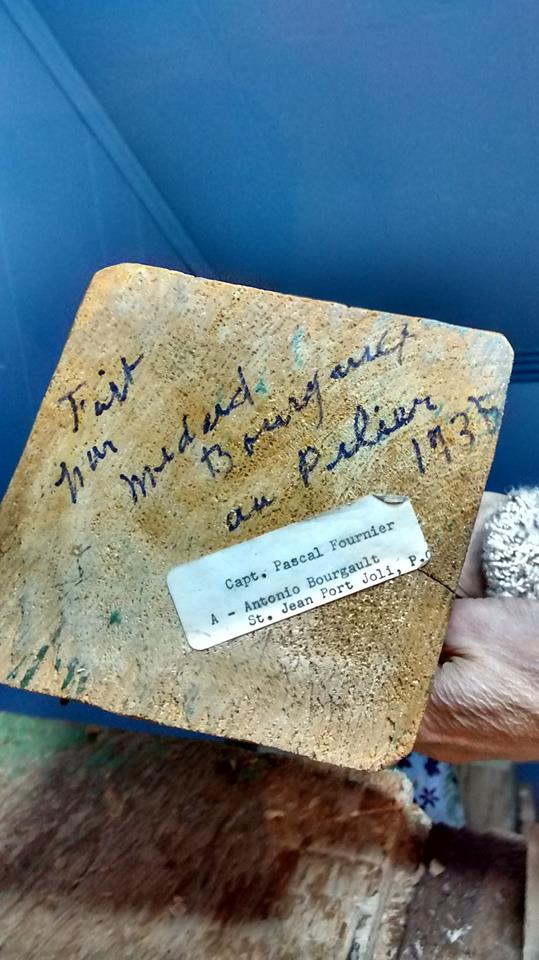 Fait
par Médard Bourgault
au Pilier 1935
Capt. Pascal Fournier
A - Antonio Bourgault
St. Jean Port Joli, P.Q